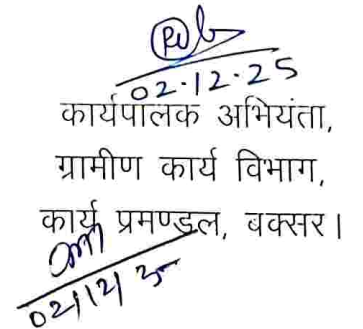 02.12.25
कार्यपालक अभियंता,
ग्रामीण कार्य विभाग,
कार्य प्रमण्डल, बक्सर।
02/12/25